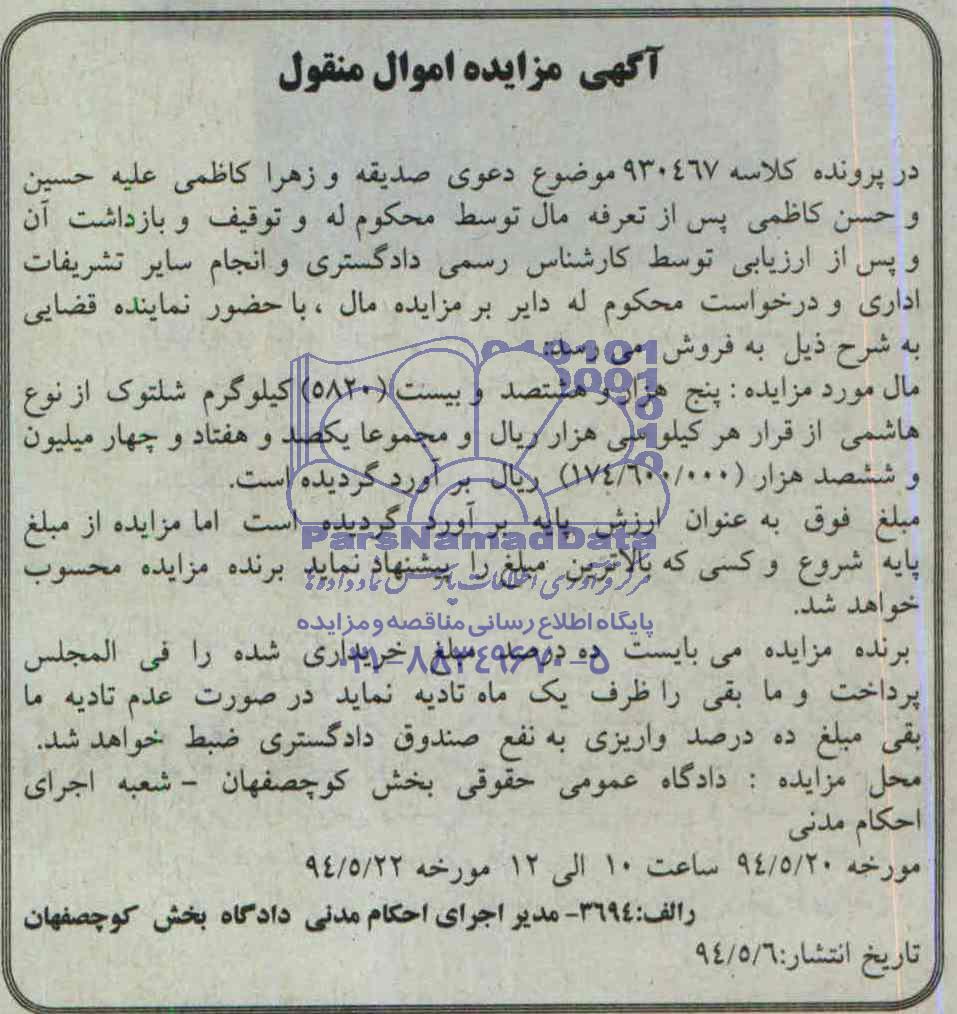 آگهی مزایده اموال منقول
در پرونده کلاسه ۹۳۰٤٦۷ موضوع دعوی صدیقه و زهرا کاظمی علیه حسین
و حسن کاظمی پس از تعرفه مال توسط محکوم له و توقیف و بازداشت آن
و پس از ارزیابی توسط کارشناس رسمی دادگستری و انجام سایر تشریفات
اداری و درخواست محکوم له دایر بر مزایده مال ، با حضور نماینده قضایی
به شرح ذیل به فروش می رسد:
مال مورد مزایده : پنج هزار و هشتصد و بیست (۵۸۲۰) کیلوگرم شلتوک از نوع
هاشمی از قرار هر کیلو سی هزار ریال و مجموعا یکصد و هفتاد و چهار میلیون
و ششصد هزار (۱۷٤/٦۰۰/۰۰۰) ریال بر آورد گردیده است.
مبلغ فوق به عنوان ارزش پایه بر آورد گردیده است اما مزایده از مبلغ
ParsNamadData
پایه شروع و کسی که بالاترین مبلغ را پیشنهاد نماید برنده مزایده محسوب
خواهد شد.
پایگاه اطلاع رسانی مناقصه و مزایده
برنده مزایده می بایست ده درصد مبلغ خریداری شده را فی المجلس
۰۲۱-۸۸۳٤۹٦۷۰-۵
پرداخت و ما بقی را ظرف یک ماه تادیه نماید در صورت عدم تادیه ما
بقی مبلغ ده درصد واریزی به نفع صندوق دادگستری ضبط خواهد شد.
محل مزایده : دادگاه عمومی حقوقی بخش کوچصفهان - شعبه اجرای
احکام مدنی
مورخه ۹٤/۵/۲۰ ساعت ۱۰ الی ۱۲ مورخه ۹٤/۵/۲۲
رالف:۳٦۹٤- مدیر اجرای احکام مدنی دادگاه بخش کوچصفهان
تاریخ انتشار:۹٤/۵/٦